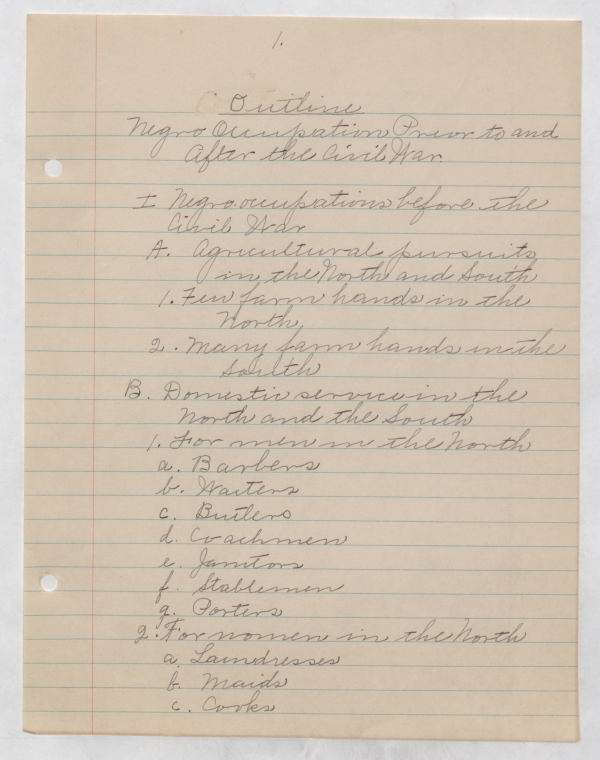 1.
Outline
Negro Occupation Prior to and
After the Civil War
I Negro occupations before the
Civil War
A. Agricultural pursuits
in the North and South
1. Few farm hands in the
North
2. Many farm hands in the
South
B. Domestic service in the
North and the South
1. For men in the North
a. Barbers
b. Waiters
c. Butlers
d. Coachmen
e. Janitors
f. Stablemen
g. Porters
2. For women in the North
a. Laundresses
b. Maids
c. Cooks